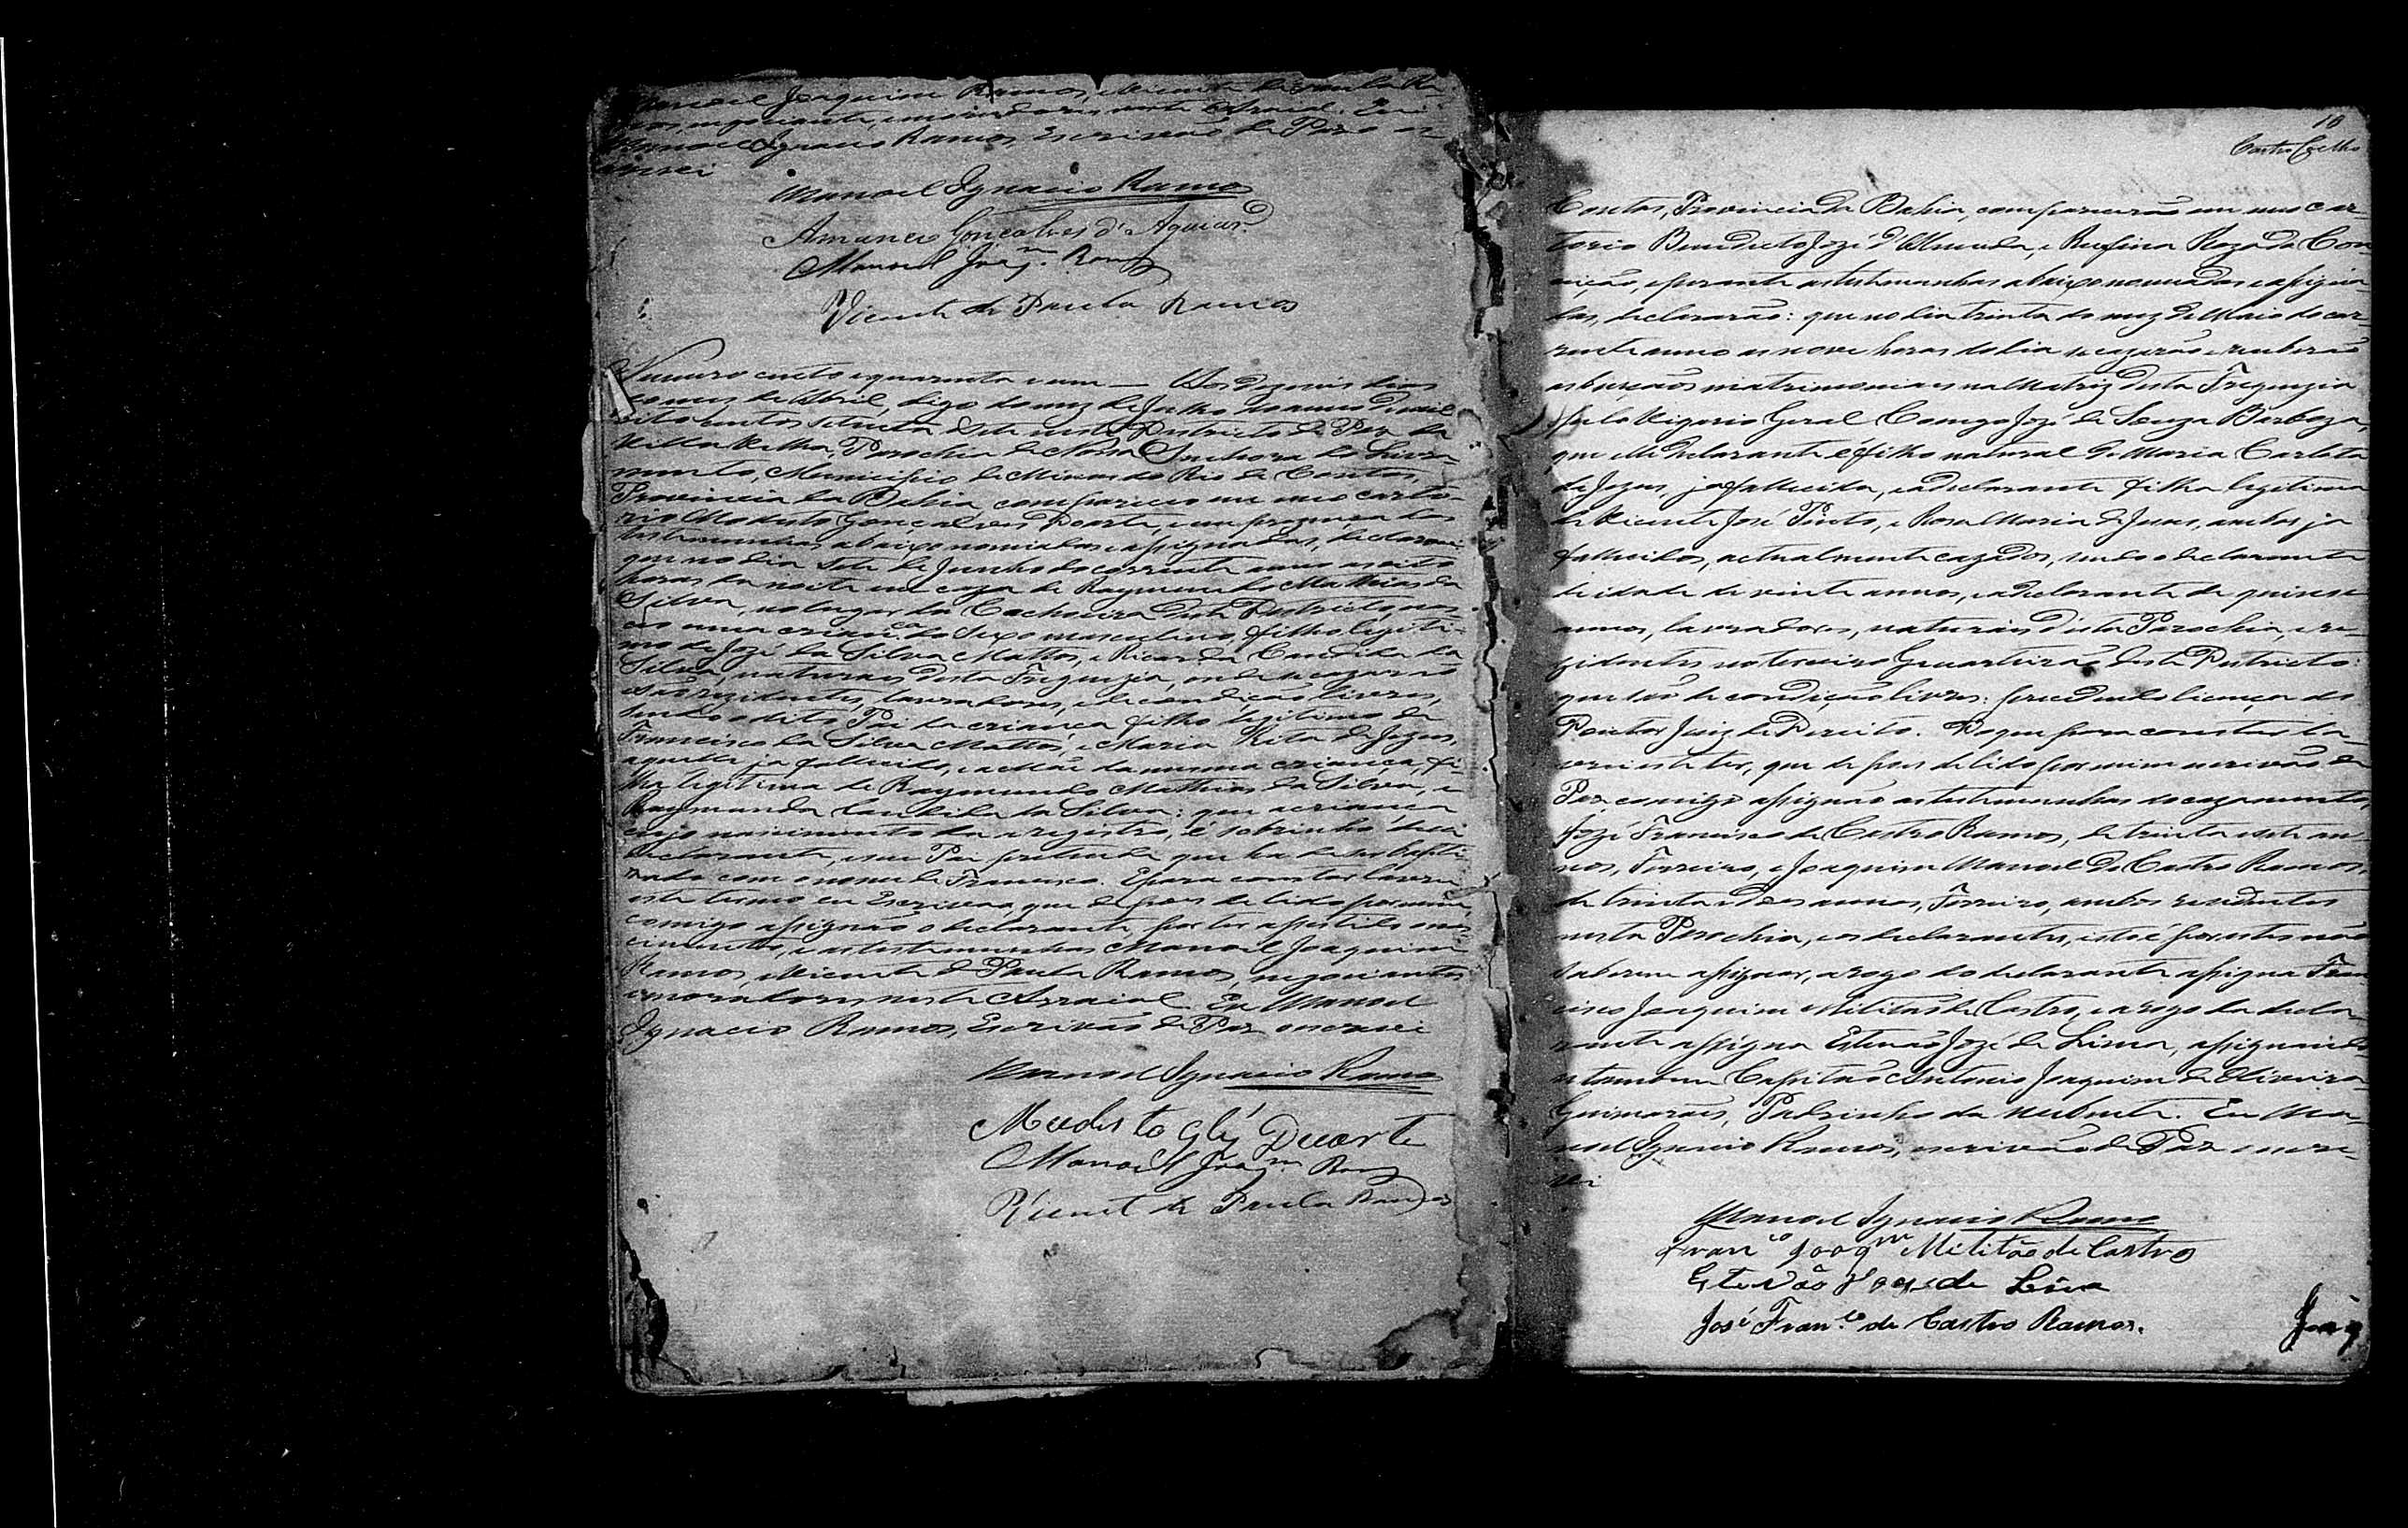 Manoel Joaquim Ramos, Vicente de Paula Ra-
mos, negociantes, moradores neste Arraial. Eu
Manoel Ignacio Ramos, Escrivão de Paz es-
crevi
Manoel Ignacio Ramos
Amancio Gonçalves d'Aguiar
Manoel Joaqm. Ramos
Vicente de Paula Ramos
Numero cento e quarenta e um — Aos dezeseis dias
do mez de Abril, digo do mez de Julho do anno de mil
oito centos setenta e sete neste Districto de Paz da
Villa Velha, Parochia de Nossa Senhora do Livra-
mento, Municipio de Minas do Rio de Contas,
Provincia da Bahia, compareceo em meo carto-
rio Modesto Gonçalves Duarte, e em prezença das
testemunhas abaixo nomiadas e assignadas, declarou
que no dia sete de Junho do corrente anno as oito
horas da noite em caza de Raymundo Mathias da
Silva, no lugar da Cachoeira deste Districto, nas-
ceo uma criança do sexo masculino, filho legiti-
mo de Jozé da Silva Mattos, e Ricarda Candida da
Silva, naturaes desta Freguezia, onde se cazarão
e são rezidentes, lavradores, e de condição livres,
sendo o dito Pai da criança filho legitimo de
Francisco da Silva Mattos, e Maria Rita de Jezus,
aquelle ja fallecido, e a Mãe da mesma criança, fi-
lha legitima de Raymundo Mathias da Silva, e
Raymunda Candida da Silva: que a criança
cujo nascimento da a registro, é sobrinho delle
declarante, e seu Pai pretende que ha de ser bapti-
zado com o nome de Francisco. E para constar lavrei
este termo eu Escrivão, que depois de lido por mim,
comigo assignão o declarante, por ter assistido o nas-
cimento, e as testemunhas Manoel Joaquim
Ramos, e Vicente de Paula Ramos, negociantes
e moradores neste Arraial. Eu Manoel
Ignacio Ramos, Escrivão de Paz o escrevi
Manoel Ignacio Ramos
Modesto Glz Duarte
Manoel Joaqm. Ramos
Vicente de Paula Ramos
10
Castro Coelho
Contas, Provincia da Bahia, comparecerão em meo car-
torio Benedicto Jozé d'Almeida, e Rufina Roza da Con-
ceição, e perante as testemunhas abaixo nomeadas e assigna-
das, declararão: que no dia trinta do mez de Maio do cor-
rente anno as nove horas do dia se cazarão e receberão
as bençãos matrimoniaes na Matriz desta Freguezia
pelo Vigario Geral Conego Jozé de Souza Barboza,
que elle declarante é filho natural de Maria Carlota
de Jezus, ja fallecida, e a declarante filha legitima
de Vicente José Pinto, e Rosa Maria de Jesus, ambos ja
fallecidos, actualmente cazados, sendo o declarante
de idade de vinte annos, e a declarante de quinze
annos, lavradores, naturaes desta Parochia, e re-
zidentes no terceiro Quarteirão deste Districto:
que são de condição livres: precedendo licença do
Doutor Juiz de Direito. Do que para constar la-
vrei este ter, que depois de lido por mim escrivão de
Paz comigo assignão as testemunhas do cazamento,
Jozé Francisco de Castro Ramos, de trinta e sete an-
nos, Ferreiro, e Joaquim Manoel de Castro Ramos,
de trinta e dois annos, Ferreiro, ambos rezidentes
nesta Parochia, e os declarantes, isto é por estes não
saberem assignar, a rogo do declarante assigna Fran-
cisco Joaquim Militão de Castro, e a rogo da decla-
rante assigna Estevão Jozé de Lima, assignando
e tambem Capitão Antonio Joaquim de Oliveira
Guimarães, Padrinho da nubente. Eu Ma-
noel Ignacio Ramos, escrivão de Paz o escre-
vi
Manoel Ignacio Ramos
Franco. Joaqm. Militão de Castro
Estevão Joze de Lima
José Franco. de Castro Ramos.